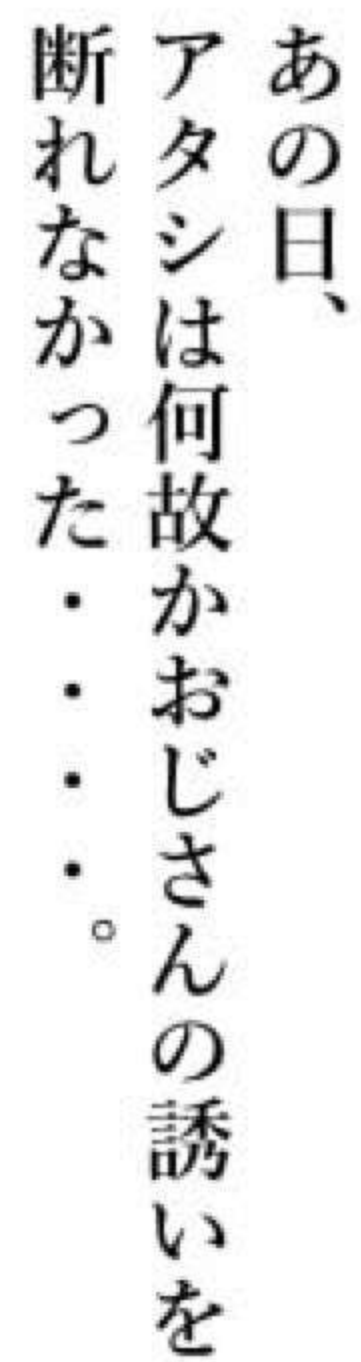 あの日、
アタシは何故かおじさんの誘いを
断れなかった・・・・。